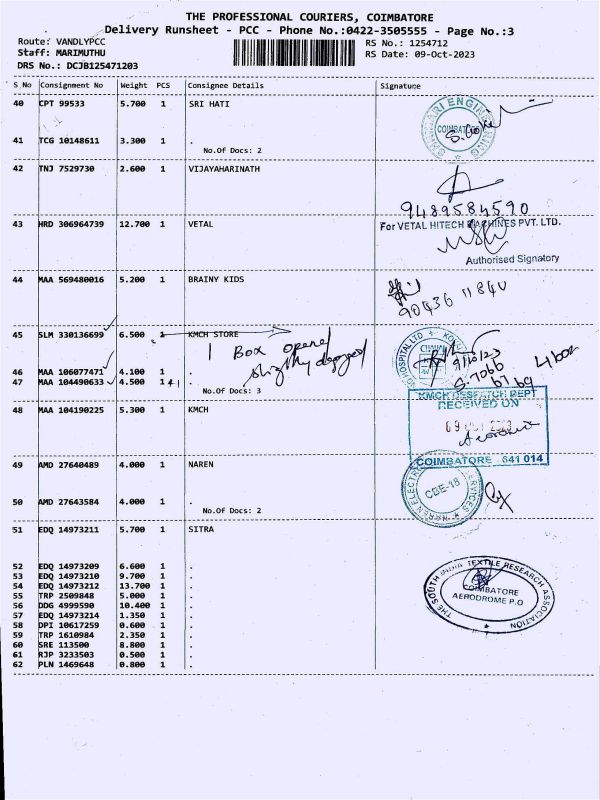 THE PROFESSIONAL COURIERS, COIMBATORE
Delivery Runsheet - PCC - Phone No.:0422-3505555 - Page No.:3
Route: VANDLYPCC
RS No.: 1254712
Staff: MARIMUTHU
RS Date: 09-Oct-2023
DRS No.: DCJB125471203
S No Consignment No Weight PCS Consignee Details Signature
40 CPT 99533 5.700 1 SRI HATI
COIMBATORE
41 TCG 10148611 3.300 1 .
No.Of Docs: 2
42 TNJ 7529730 2.600 1 VIJAYAHARINATH
9489584590
43 HRD 306964739 12.700 1 VETAL
For VETAL HITECH MACHINES PVT. LTD.
Authorised Signatory
44 MAA 569480016 5.200 1 BRAINY KIDS
90436 11840
45 SLM 330136699 6.500 1 KMCH STORE
1 Box opened
slightly damaged
9/10/23
S.7066
67 69
4 box
46 MAA 106077471 4.100 1 .
47 MAA 104490633 4.500 1 .
No.Of Docs: 3
KMCH DESPATCH DEPT
RECEIVED ON
48 MAA 104190225 5.300 1 KMCH
COIMBATORE 641 014
49 AMD 27640489 4.000 1 NAREN
CBE-18
50 AMD 27643584 4.000 1 .
No.Of Docs: 2
51 EDQ 14973211 5.700 1 SITRA
THE SOUTH INDIA TEXTILE RESEARCH ASSOCIATION
COIMBATORE
AERODROME P.O
52 EDQ 14973209 6.600 1 .
53 EDQ 14973210 9.700 1 .
54 EDQ 14973212 13.700 1 .
55 TRP 2509848 5.000 1 .
56 DDG 4999590 10.400 1 .
57 EDQ 14973214 1.350 1 .
58 DPI 10617259 0.600 1 .
59 TRP 1610984 2.350 1 .
60 SRE 113500 8.800 1 .
61 RJP 3233503 0.500 1 .
62 PLN 1469648 0.800 1 .